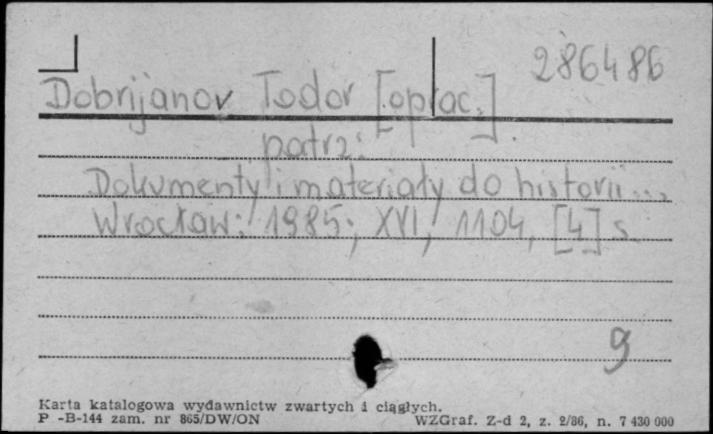 286486
Dobrijanov Todor [oprac.]
patrz:
Dokumenty i materiały do historii...
Wrocław: 1985; XVI, 1104, [4] s.
g
Karta katalogowa wydawnictw zwartych i ciągłych.
P -B-144 zam. nr 865/DW/ON WZGraf. Z-d 2, z. 2/86, n. 7 430 000